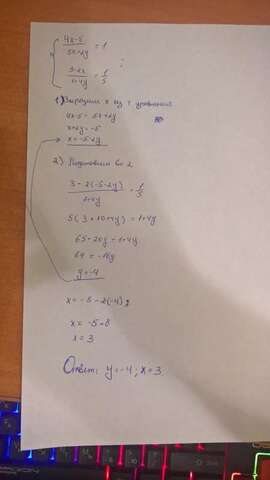 4x-5 / 5x+2y = 1
3-2x / 1+4y = 1/5
1) Выразим x из 1 уравнения
4x-5 = 5x+2y
x+2y = -5
x = -5-2y
2) Подставим во 2
3-2(-5-2y) / 1+4y = 1/5
5(3+10+4y) = 1+4y
65+20y = 1+4y
64 = -16y
y = -4
x = -5-2(-4)
x = -5+8
x = 3
Ответ: y = -4; x = 3